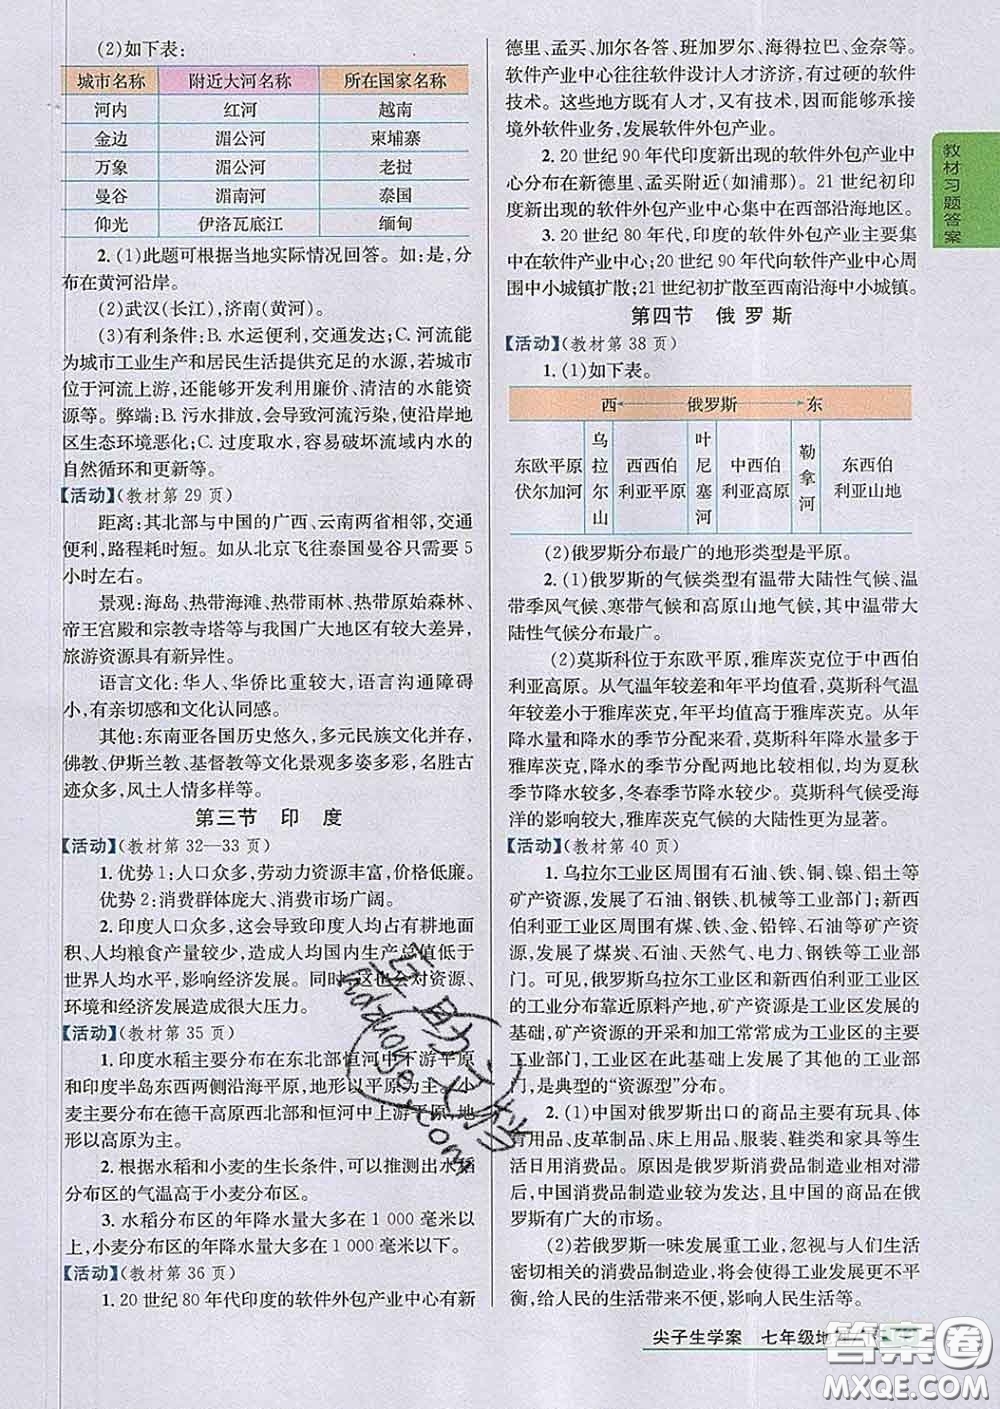 (2)如下表:
城市名称 附近大河名称 所在国家名称
河内 红河 越南
金边 湄公河 柬埔寨
万象 湄公河 老挝
曼谷 湄南河 泰国
仰光 伊洛瓦底江 缅甸
2. (1)此题可根据当地实际情况回答。如:是,分
布在黄河沿岸。
(2)武汉(长江),济南(黄河)。
(3)有利条件:B. 水运便利,交通发达;C. 河流能
为城市工业生产和居民生活提供充足的水源,若城市
位于河流上游,还能够开发利用廉价、清洁的水能资
源等。弊端:B. 污水排放,会导致河流污染,使沿岸地
区生态环境恶化;C. 过度取水,容易破坏流域内水的
自然循环和更新等。
【活动】(教材第 29 页)
距离:其北部与中国的广西、云南两省相邻,交通
便利,路程耗时短。如从北京飞往泰国曼谷只需要 5
小时左右。
景观:海岛、热带海滩、热带雨林、热带原始森林、
帝王宫殿和宗教寺塔等与我国广大地区有较大差异,
旅游资源具有新异性。
语言文化:华人、华侨比重较大,语言沟通障碍
小,有亲切感和文化认同感。
其他:东南亚各国历史悠久,多元民族文化并存,
佛教、伊斯兰教、基督教等文化景观多姿多彩,名胜古
迹众多,风土人情多样等。
第三节 印 度
【活动】(教材第 32—33 页)
1. 优势 1:人口众多,劳动力资源丰富,价格低廉。
优势 2:消费群体庞大、消费市场广阔。
2. 印度人口众多,这会导致印度人均占有耕地面
积、人均粮食产量较少,造成人均国内生产总值低于
世界人均水平,影响经济发展。同时,这也会对资源、
环境和经济发展造成很大压力。
【活动】(教材第 35 页)
1. 印度水稻主要分布在东北部恒河中下游平原
和印度半岛东西两侧沿海平原,地形以平原为主。小
麦主要分布在德干高原西北部和恒河中上游平原,地
形以高原为主。
2. 根据水稻和小麦的生长条件,可以推测出水稻
分布区的气温高于小麦分布区。
3. 水稻分布区的年降水量大多在 1 000 毫米以
上,小麦分布区的年降水量大多在 1 000 毫米以下。
【活动】(教材第 36 页)
1. 20 世纪 80 年代印度的软件外包产业中心有新
德里、孟买、加尔各答、班加罗尔、海得拉巴、金奈等。
软件产业中心往往软件设计人才济济,有过硬的软件
技术。这些地方既有人才,又有技术,因而能够承接
境外软件业务,发展软件外包产业。
2. 20 世纪 90 年代印度新出现的软件外包产业中
心分布在新德里、孟买附近(如浦那)。21 世纪初印
度新出现的软件外包产业中心集中在西部沿海地区。
3. 20 世纪 80 年代,印度的软件外包产业主要集
中在软件产业中心;20 世纪 90 年代向软件产业中心周
围中小城镇扩散;21 世纪初扩散至西南沿海中小城镇。
第四节 俄罗斯
【活动】(教材第 38 页)
1. (1)如下表。
西 俄罗斯 东
东欧平原 伏尔加河 乌拉尔山 西西伯利亚平原 叶尼塞河 中西伯利亚高原 勒拿河 东西伯利亚山地
(2)俄罗斯分布最广的地形类型是平原。
2. (1)俄罗斯的气候类型有温带大陆性气候、温
带季风气候、寒带气候和高原山地气候,其中温带大
陆性气候分布最广。
(2)莫斯科位于东欧平原,雅库茨克位于中西伯
利亚高原。从气温年较差和年平均值看,莫斯科气温
年较差小于雅库茨克,年平均值高于雅库茨克。从年
降水量和降水的季节分配来看,莫斯科年降水量多于
雅库茨克,降水的季节分配两地比较相似,均为夏秋
季节降水较多,冬春季节降水较少。莫斯科气候受海
洋的影响较大,雅库茨克气候的大陆性更为显著。
【活动】(教材第 40 页)
1. 乌拉尔工业区周围有石油、铁、铜、镍、铝土等
矿产资源,发展了石油、钢铁、机械等工业部门;新西
伯利亚工业区周围有煤、铁、金、铅锌、石油等矿产资
源,发展了煤炭、石油、天然气、电力、钢铁等工业部
门。可见,俄罗斯乌拉尔工业区和新西伯利亚工业区
的工业分布靠近原料产地,矿产资源是工业区发展的
基础,矿产资源的开采和加工常常成为工业区的主要
工业部门,工业区在此基础上发展了其他的工业部
门,是典型的“资源型”分布。
2. (1)中国对俄罗斯出口的商品主要有玩具、体
育用品、皮革制品、床上用品、服装、鞋类和家具等生
活日用消费品。原因是俄罗斯消费品制造业相对滞
后,中国消费品制造业较为发达,且中国的商品在俄
罗斯有广大的市场。
(2)若俄罗斯一味发展重工业,忽视与人们生活
密切相关的消费品制造业,将会使得工业发展更不平
衡,给人民的生活带来不便,影响人民生活等。
教材习题答案
尖子生学案 七年级地
答案圈
MXQE.COM